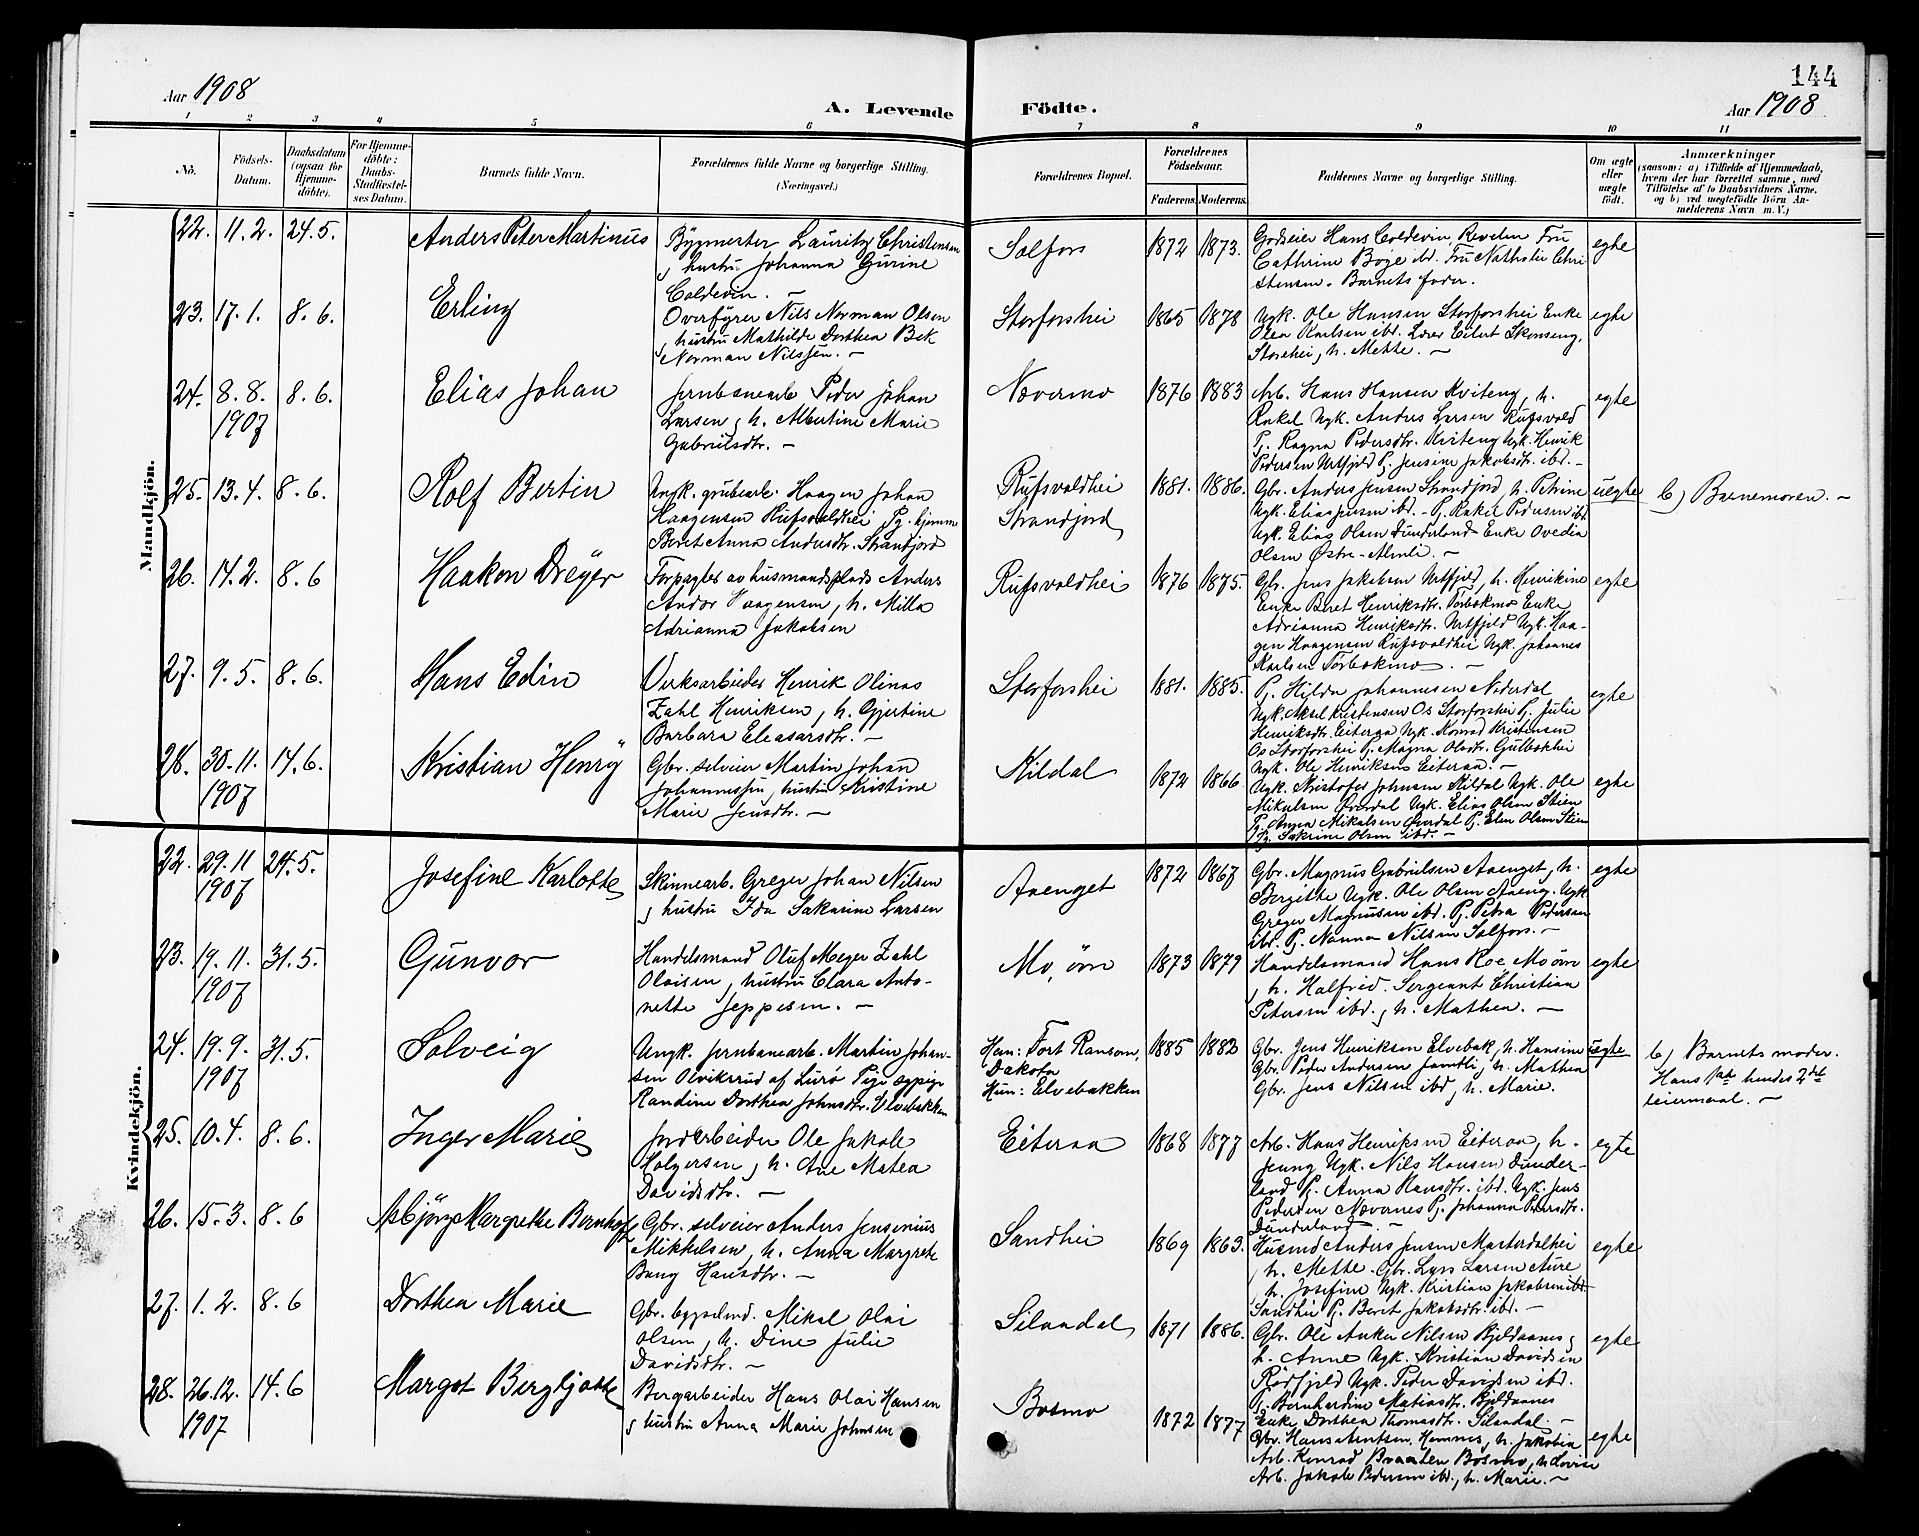 144
Aar 1908
A. Levende Födte.
Aar 1908
1 2 3 4 5 6 7 8 9 10 11
No.
Födsels-Datum.
Daabsdatum (ogsaa for Hjemme-döbte).
For Hjemme-döbte: Daabs-Stadfæstel-ses Datum.
Barnets fulde Navn.
Forældrenes fulde Navne og borgerlige Stilling.
(Næringsvei.)
Forældrenes Bopæl.
Forældrenes Födselsaar.
Faderens. Moderens.
Faddernes Navne og borgerlige Stilling.
Om ægte eller uægte födt.
Anmærkninger
(saasom: a) i Tilfælde af Hjemmedaab,
hvem der har forrettet samme, med
Tilföielse af to Daabsvidners Navne,
og b) ved uægtefödte Börn An-
melderens Navn m. V.)
Mandkjön.
22. 11.2. 24.5. Anders Peter Martinus
Bygmester Lauritz Christensen
, hustru Johanna Gurine
Coldevin. —
Selfors 1872 1873.
Godseier Hans Coldevin, Revelen Fru
Cathrine Boye ibd. Fru Nathalie Chri-
stensen. Barnets fader.
egte
23. 17.1. 8.6. Erling
Overfyrer Nils Norman Olsen
, hustru Mathilde Dorthea Bek
Norman Nilssen. —
Storforshei 1865 1878
Ugk. Ole Hansen Storforshei Enke
Olea Karlsen ibd. Lærer Eilert Skonseng,
Storehei, h. Mette. —
egte
24. 8.8. 1907 8.6. Elias Johan
Jernbanearb. Peder Johan
Larsen, h. Albertine Marie
Gabrielsdtr. —
Nævermo 1876 1883
Arb. Hans Hansen Kviteng, h.
Rakel Ugk. Anders Larsen Rufsvold
Pj. Ragna Pedersdtr. Kviteng Ugk. Henrik
Pedersen Urtfjeld Pj. Jensine Jakobsdtr. ibd. —
egte
25. 13.4. 8.6. Rolf Bertin
Ungk. grubearb. Haagen Johan
Haagensen Rufsvoldhei Pg. hjemme
Beret Anna Andersdtr. Strandjord
Rufsvoldhei
Strandjord
1881. 1886.
Gbr. Anders Jensen Strandjord, h. Petrine
Ugk. Elias Jensen ibd. — Pj. Rakel Pedersen ibd.
Ugk. Elias Olsen Dunderland Enke Ovedia
Olsen Østre-Almli. —
uegte b) Barnemoren. —
26. 14.2. 8.6 Haakon Dreyer
Forpagter av husmandsplads Anders
Andor Haagensen, h. Milla
Adrianna Jakobsen
Rufsvoldhei 1876 1875.
Gbr. Jens Jakobsen Urtfjeld, h. Henrikine
Enke Beret Henriksdtr. Torbekmo Enke
Adrianna Henriksdtr. Urtfjeld Ugk. Haa-
gen Haagensen Rufsvoldhei Ugk. Johannes
Karlsen Torbekmo. —
egte
27. 9.5. 8.6. Hans Edin
Verksarbeider Henrik Olinas
Zahl Henriksen, h. Gjertine
Barbara Eleasarsdtr. —
Storforshei 1881. 1885.
Pj. Hilda Johannesen Nederdal
Ugk. Aksel Kristensen Os Storforshei Pj. Julie
Henriksdtr. Eiteraa Ugk. Konrad Kristensen
Os Storforshei Pj. Magna Olsdtr. Gulbekhei
Ugk. Ole Henriksen Eiteraa. —
egte
28. 30.11. 1907 14.6. Kristian Henry
Gbr. selveier Martin Johan
Johannessen, hustru Kristine
Marie Jensdtr. —
Kildal 1872 1866
Ugk. Kristofer Johnsen Kildal Ugk. Ole
Mikalsen Överdal Ugk. Elias Olsen Stien
Pj. Anna Mikalsen Överdal Pj. Elen Olsen Stien
Pj. Sakrine Olsen ibd. —
egte
Kvindekjön.
22. 29.11 1907 24.5. Josefine Karlotte
Skinnearb. Greger Johan Nilsen
, hustru Ida Sakarine Larsen
Avenget 1872 1867
Gbr. Magnus Gabrielsen Avenget, h.
Bergithe Ugk. Ole Olsen Aveng. Ugk.
Greger Magnussen ibd. Pj. Petra Pedersen
ibd. Pj. Nanna Nilsen Selfors. —
egte
23. 19.11. 1907 31.5. Gunvor
Handelsmand Oluf Meyer Zahl
Olaisen, hustru Clara Anto-
nette Jeppesen. —
Mo, örn 1873 1879
Handelsmand Hans Roe, Mo örn
, h. Halfrid. Sergeant Christian
Petersen ibd., h. Mathea. —
egte
24. 19.9. 1907 31.5. Solveig
Ungk. Jernbanearb. Martin Johan-
sen Olviksrud af Lurø Pige oppige
Randine Dorthea Johnsdtr. Elvebakken
Ham: Fort Ransom,
Dakota
Hun: Elvebakken
1885 1882
Gbr. Jens Henriksen Elvebak, h. Hansine
Gbr. Peder Andersen Jamtli, h. Mathea
Gbr. Jens Nilsen ibd, h. Marie.
uegte
b) Barnets moder.
Hans 1ste hendes 2det
leiermaal. —
25. 10.4. 8.6. Inger Marie
Jordarbeider Ole Jakob
Holgersen, h. Ane Matea
Davidsdtr. —
Eiteraa 1868 1877
Arb. Hans Henriksen Eiteraa, h.
Jenny Ugk. Nils Hansen Dunder-
land Pj. Anna Hansdtr. ibd. Ugk. Jens
Pedersen Nævernes Pj. Johanna Pedersdtr.
Dunderland. —
egte
26. 15.3. 8.6 Asbjörg Margrethe Bernhof
Gbr. selveier Anders Jensenius
Mikkelsen, h. Anna Margrete
Bang Hansdtr. —
Sandhei 1869 1863.
Husmd Anders Jensen Masterdalhei
, h. Mette. Gbr. Lars Larsen Aure
h. Josefine Ugk. Kristian Jakobsen ibd.
Sandhei Pj. Berit Jakobsdtr. ibd. —
egte
27. 1.2. 8.6 Dorthea Marie
Gbr. bygselmd. Mikal Olai
Olsen, h. Dine Julie
Davidsdtr. —
Silandal, 1871 1886.
Gbr. Ole Anker Nilsen Bjeldaanes,
h. Anne Ugk. Kristian Davidsen
Rödfjeld Ugk. Peder Davidsen ibd.
Pj. Bernhardine Matiasdtr. Bjeldaanes
Enke Dorthea Thomasdtr. Silandal. —
egte
28. 26.12. 1907 14.6 Margot Bergljotte
Bergarbeider Hans Olai Hansen
, hustru Anna Marie Johnsen
Bosmo 1872 1877
Gbr. Hans Arntsen, Hemnes, h. Jakobia
Arb. Konrad Braaten Bosmo, h Lovise
Arb. Jakob Pedersen ibd., h. Marie. —
egte